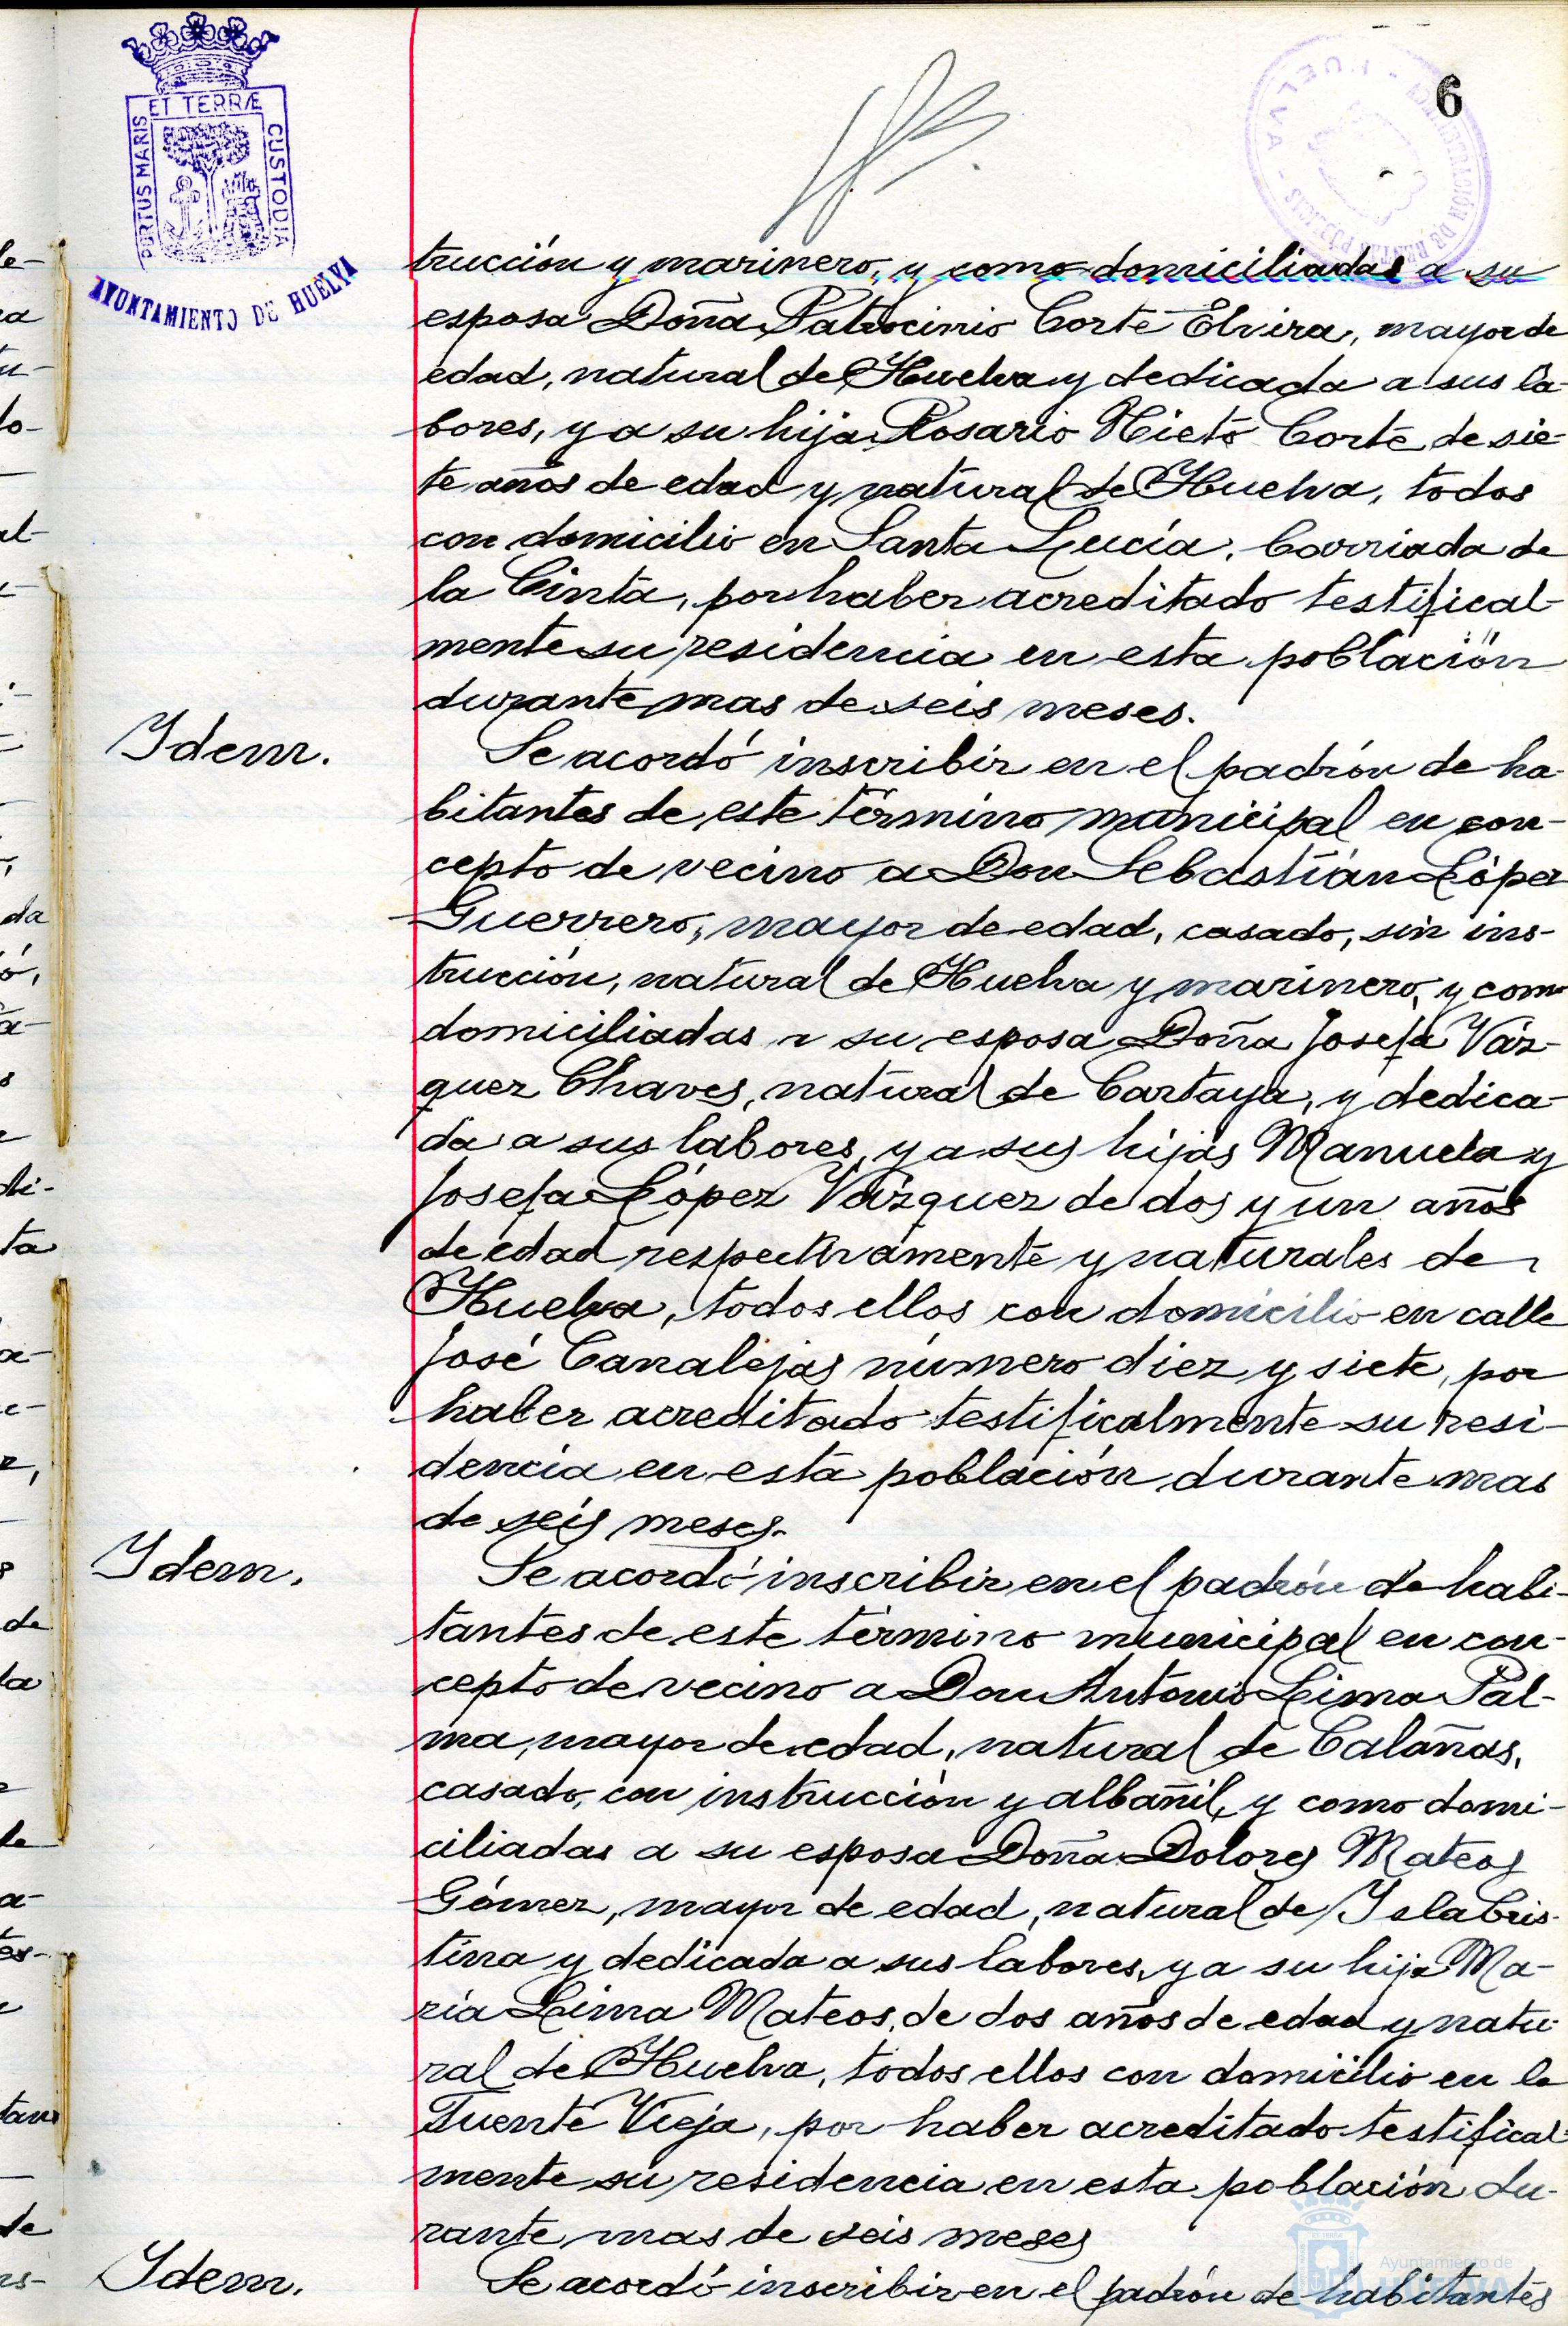 PORTUS MARIS ET TERRÆ CUSTODIA
AYUNTAMIENTO DE HUELVA
6
trucción y marinero, y como domiciliadas a su
esposa Doña Patrocinio Corte Elvira, mayor de
edad, natural de Huelva y dedicada a sus la-
bores, y a su hija Rosario Nieto Corte, de sie-
te años de edad y natural de Huelva, todos
con domicilio en Santa Lucía, barriada de
la Cinta, por haber acreditado testifical-
mente su residencia en esta población
durante mas de seis meses.
Idem.
Se acordó inscribir en el padrón de ha-
bitantes de este término municipal en con-
cepto de vecino a Don Sebastián López
Guerrero, mayor de edad, casado, sin ins-
trucción, natural de Huelva y marinero, y como
domiciliadas a su esposa Doña Josefa Váz-
quez Chaves, natural de Cartaya, y dedica-
da a sus labores, y a sus hijas Manuela y
Josefa López Vázquez de dos y un años
de edad respectivamente y naturales de
Huelva, todos ellos con domicilio en calle
José Canalejas número diez y siete, por
haber acreditado testificalmente su resi-
dencia en esta población durante mas
de seis meses.
Idem.
Se acordó inscribir en el padrón de habi-
tantes de este término municipal en con-
cepto de vecino a Don Antonio Lima Pal-
ma, mayor de edad, natural de Calañas,
casado, con instrucción y albañil, y como domi-
ciliadas a su esposa Doña Dolores Mateos
Gómez, mayor de edad, natural de Isla Cris-
tina y dedicada a sus labores, y a su hija Ma-
ría Lima Mateos, de dos años de edad y natu-
ral de Huelva, todos ellos con domicilio en la
Fuente Vieja, por haber acreditado testifical-
mente su residencia en esta población du-
rante mas de seis meses
Idem.
Se acordó inscribir en el padrón de habitantes
Ayuntamiento de
HUELVA